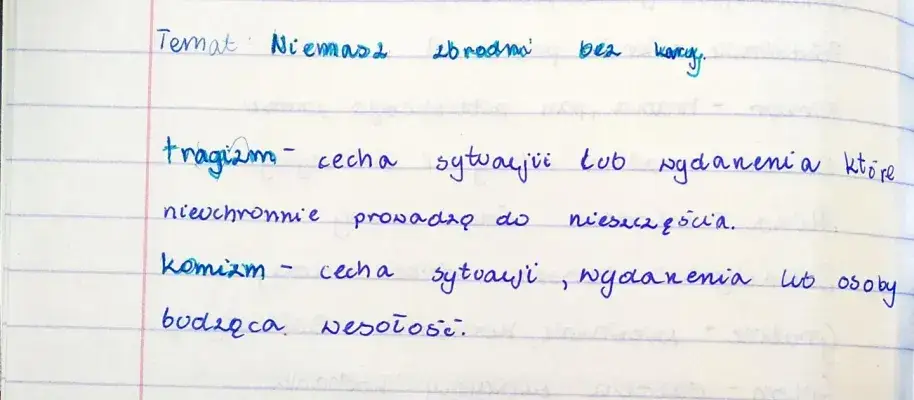 Temat: Niemasz zbrodni bez kary.
tragizm - cecha sytuacjii lub wydarzenia które
nieuchronnie prowadzę do nieszczęścia.
komizm - cecha sytuacji, wydarzenia lub osoby
budzęca wesołość.